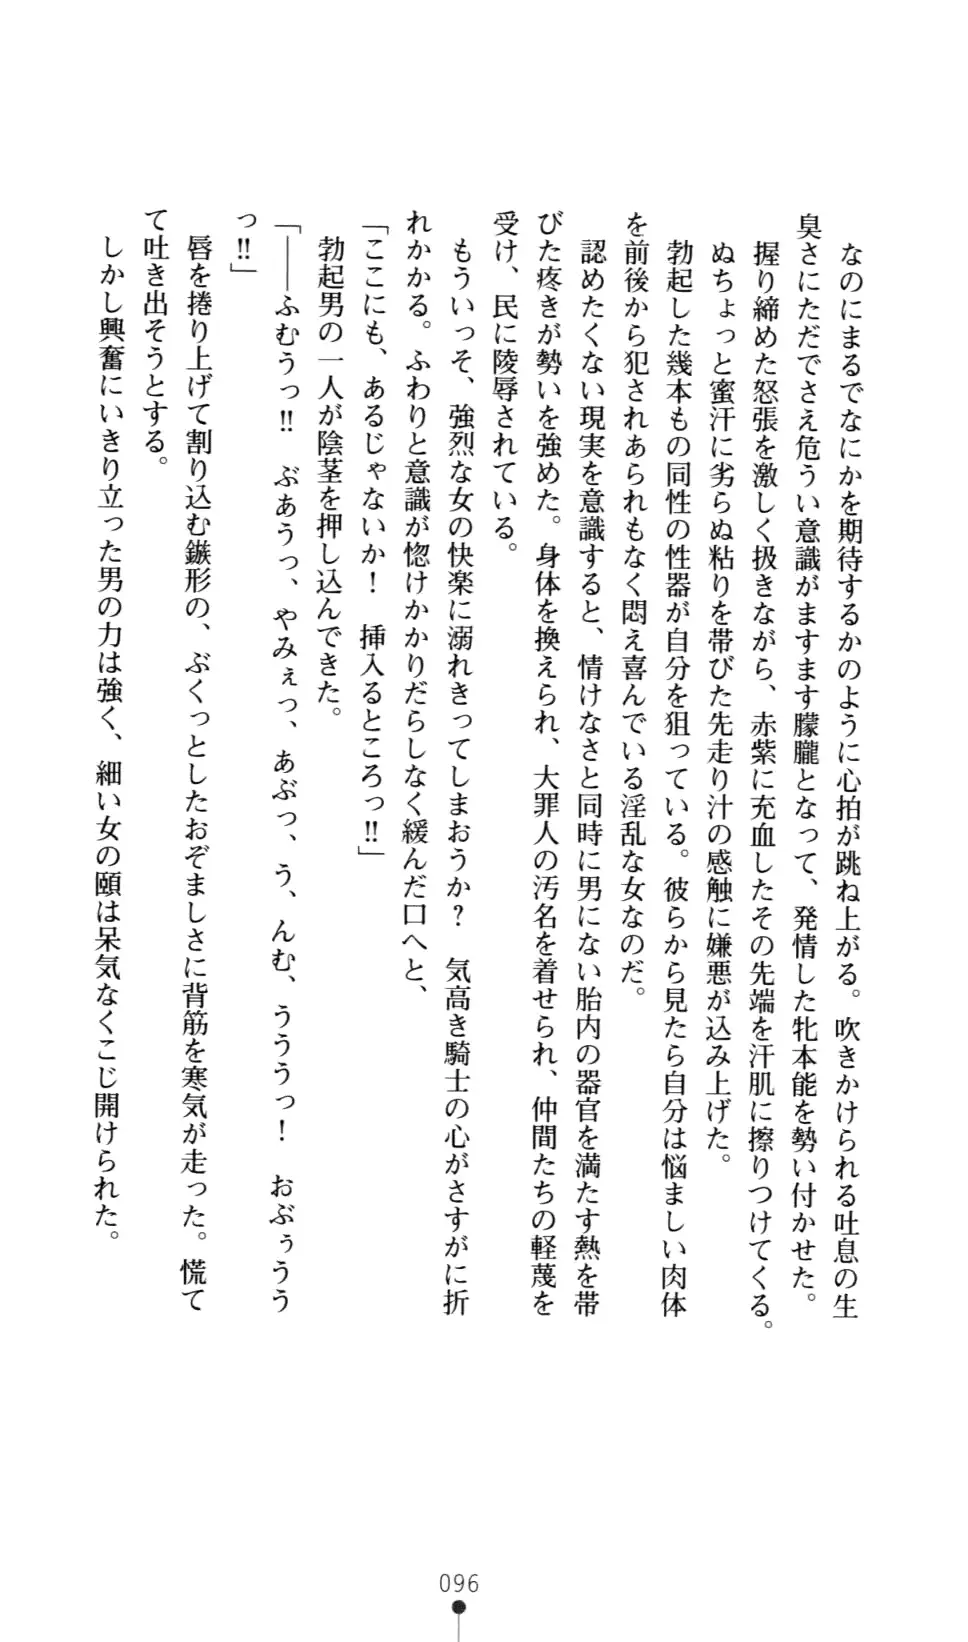 なのにまるでなにかを期待するかのように心拍が跳ね上がる。吹きかけられる吐息の生
臭さにただでさえ危うい意識がますます朦朧となって、発情した牝本能を勢い付かせた。
　握り締めた怒張を激しく扱きながら、赤紫に充血したその先端を汗肌に擦りつけてくる。
　ぬちょっと蜜汗に劣らぬ粘りを帯びた先走り汁の感触に嫌悪が込み上げた。
　勃起した幾本もの同性の性器が自分を狙っている。彼らから見たら自分は悩ましい肉体
を前後から犯されあられもなく悶え喜んでいる淫乱な女なのだ。
　認めたくない現実を意識すると、情けなさと同時に男にない胎内の器官を満たす熱を帯
びた疼きが勢いを強めた。身体を換えられ、大罪人の汚名を着せられ、仲間たちの軽蔑を
受け、民に陵辱されている。
　もういっそ、強烈な女の快楽に溺れきってしまおうか？　気高き騎士の心がさすがに折
れかかる。ふわりと意識が惚けかかりだらしなく緩んだ口へと、
「ここにも、あるじゃないか！　挿入るところっ‼」
　勃起男の一人が陰茎を押し込んできた。
「――ふむうっ‼　ぶあうっ、やみぇっ、あぶっ、う、んむ、うううっ！　おぶぅうう
っ‼」
　唇を捲り上げて割り込む鏃形の、ぶくっとしたおぞましさに背筋を寒気が走った。慌て
て吐き出そうとする。
　しかし興奮にいきり立った男の力は強く、細い女の頤は呆気なくこじ開けられた。
096